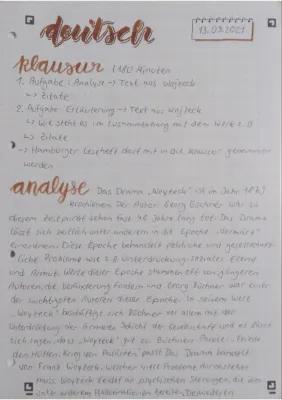 deutsch
13.03.2021
klausur (180 Minuten
1. Aufgabe: Analyse → Text aus Woyzeck
↳ Zitate
2. Aufgabe: Erläuterung → Text aus Woyzeck
↳ wie steht es im Zusammenhang mit dem Werk z.B
↳ Zitate
→ Hamburger Leseheft darf mit in die Klausur genommen
werden
analyse Das Drama „Woyzeck" ist im Jahr 1879
erschienen. Der Autor Georg Büchner war zu
diesem Zeitpunkt schon fast 46 Jahre lang tot. Das Drama
lässt sich zeitlich unter anderem in die Epoche „Vormärz"
einordnen. Diese Epoche behandelt politische und gesellschaft-
liche Probleme wie z.B Unterdrückung, soziales Elend
und Armut. Werke dieser Epoche stammen oft von jüngeren
Autoren, die Veränderung fordern und Georg Büchner war einer
der wichtigsten Autoren dieser Epoche. In seinem Werk
„Woyzeck" beschäftigt sich Büchner vor allem mit der
Unterdrückung der ärmeren Schicht der Gesellschaft und es lässt
sich sagen, dass „Woyzeck" gut zu Büchners Parole: „Friede
den Hütten, Krieg den Palästen" passt. Das Drama handelt
von Franz Woyzeck, welcher viele Probleme durchstehen
muss. Woyzeck leidet an psychischen Störungen, die ihm
unter anderem Halluzinationen bereiten. Desweiteren